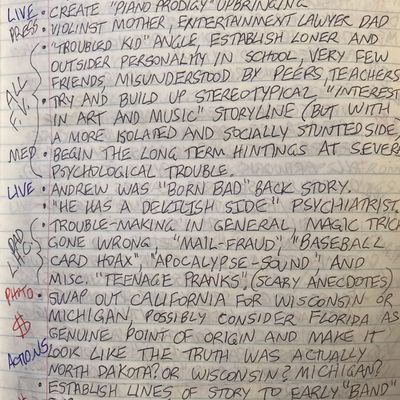 LIVE • CREATE "PIANO PRODIGY" UPBRINGING
PRESS • VIOLINST MOTHER, ENTERTAINMENT LAWYER DAD
• "TROUBLED KID" ANGLE, ESTABLISH LONER AND
OUTSIDER PERSONALITY IN SCHOOL, VERY FEW
FRIENDS, MISUNDERSTOOD BY PEERS, TEACHERS
ALL • TRY AND BUILD UP STEREOTYPICAL "INTEREST
IN ART AND MUSIC" STORYLINE (BUT WITH
A MORE ISOLATED AND SOCIALLY STUNTED SIDE)
MED • BEGIN THE LONG TERM HINTINGS AT SEVERE
PSYCHOLOGICAL TROUBLE.
LIVE • ANDREW WAS "BORN BAD" BACK STORY.
• "HE HAS A DEVILISH SIDE" PSYCHIATRIST.
• TROUBLE-MAKING IN GENERAL, MAGIC TRICK
GONE WRONG, "MAIL-FRAUD", "BASEBALL
CARD HOAX", "APOCALYPSE-SOUND", AND
MISC. "TEENAGE PRANKS". (SCARY ANECDOTES)
PHOTO • SWAP OUT CALIFORNIA FOR WISCONSIN OR
$ MICHIGAN, POSSIBLY CONSIDER FLORIDA AS
GENUINE POINT OF ORIGIN AND MAKE IT
ACTIONS LOOK LIKE THE TRUTH WAS ACTUALLY
NORTH DAKOTA? OR WISCONSIN? MICHIGAN?
• ESTABLISH LINES OF STORY TO EARLY "BAND"